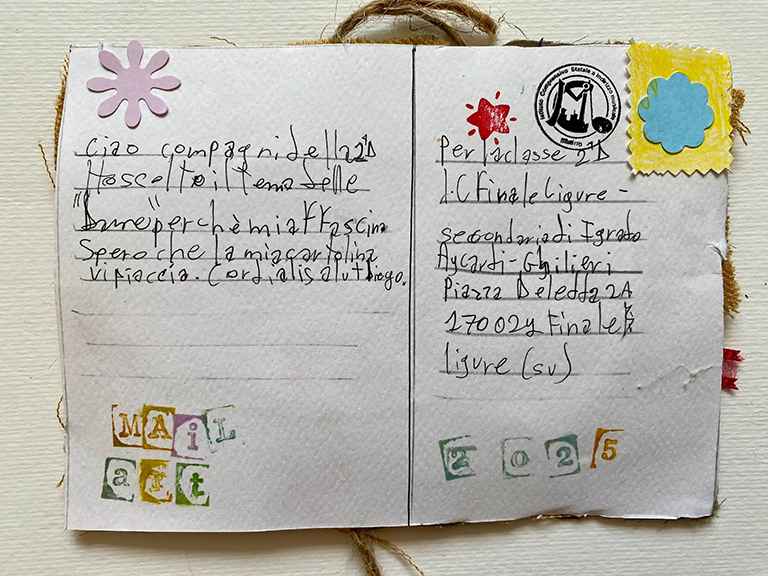 Ciao compagni della 2ªD
Ho scelto il tema delle
"Dune" perchè mi affascina
Spero che la mia cartolina
vi piaccia. Cordiali saluti Diego.
MAiL
art
Istituto Comprensivo Statale a indirizzo musicale
Per la classe 2ªD
I.C Finale Ligure -
secondaria di I grado
Aycardi-Ghilieri
Piazza Deledda 2A
17024 Finale
ligure (sv)
2025